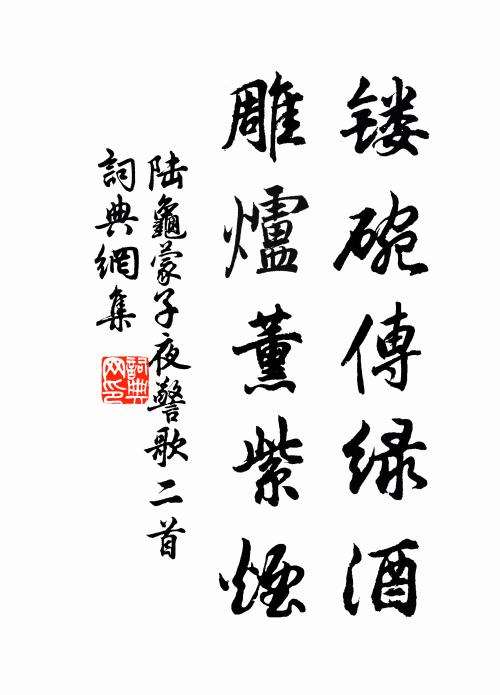 镂碗傅绿酒
雕爐薰紫煙
陆龜蒙子夜警歌二首
詞典網集
詞典
网印